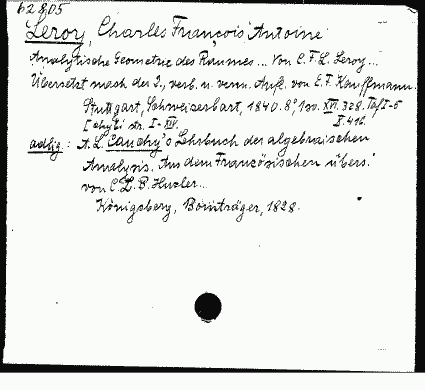 62805
Leroy, Charles François Antoine
Analytische Geometrie des Raumes... Von C.F.L. Leroy...
Übersetzt nach der 2., verb. u. verm. Aufl. von E.F. Kauffmann.
Stuttgart, Schweizerbart, 1840. 8°, 1 vol. XVI. 328. Taf I-5
I-XIV. II. 416.
adlig.: A.L. Cauchy's Lehrbuch der algebraischen
Analysis. Aus dem Französischen übers.
von C.L.B. Huzler...
Königsberg, Bornträger, 1828.